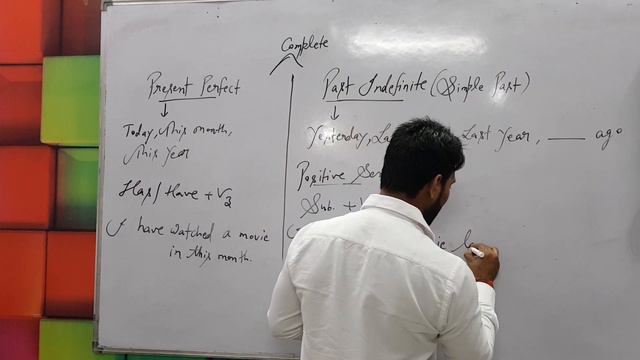 Complete
Present Perfect
Today, this month,
this year
Has/Have + V3
I have watched a movie
in this month.
Past Indefinite (Simple Past)
Yesterday, Last year, ___ ago
Positive
Sub. +